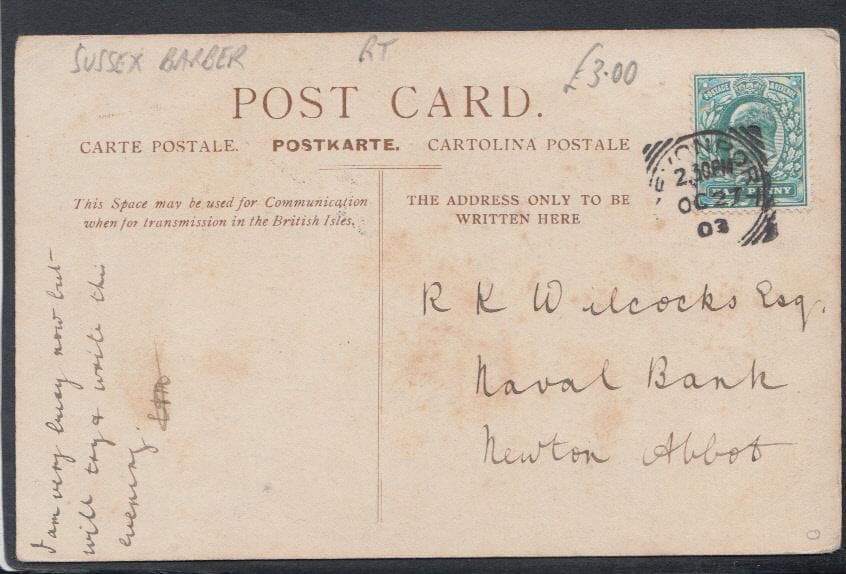 SUSSEX BARBER RT £3.00
POST CARD.
CARTE POSTALE. POSTKARTE. CARTOLINA POSTALE
This Space may be used for Communication
when for transmission in the British Isles.
THE ADDRESS ONLY TO BE
WRITTEN HERE
POSTAGE REVENUE
HALFPENNY
EVONPOR
2.30PM
OC 27
03
R K Wilcocks Esq.
Naval Bank
Newton Abbot
I am very busy now but
will try & write this
evening.